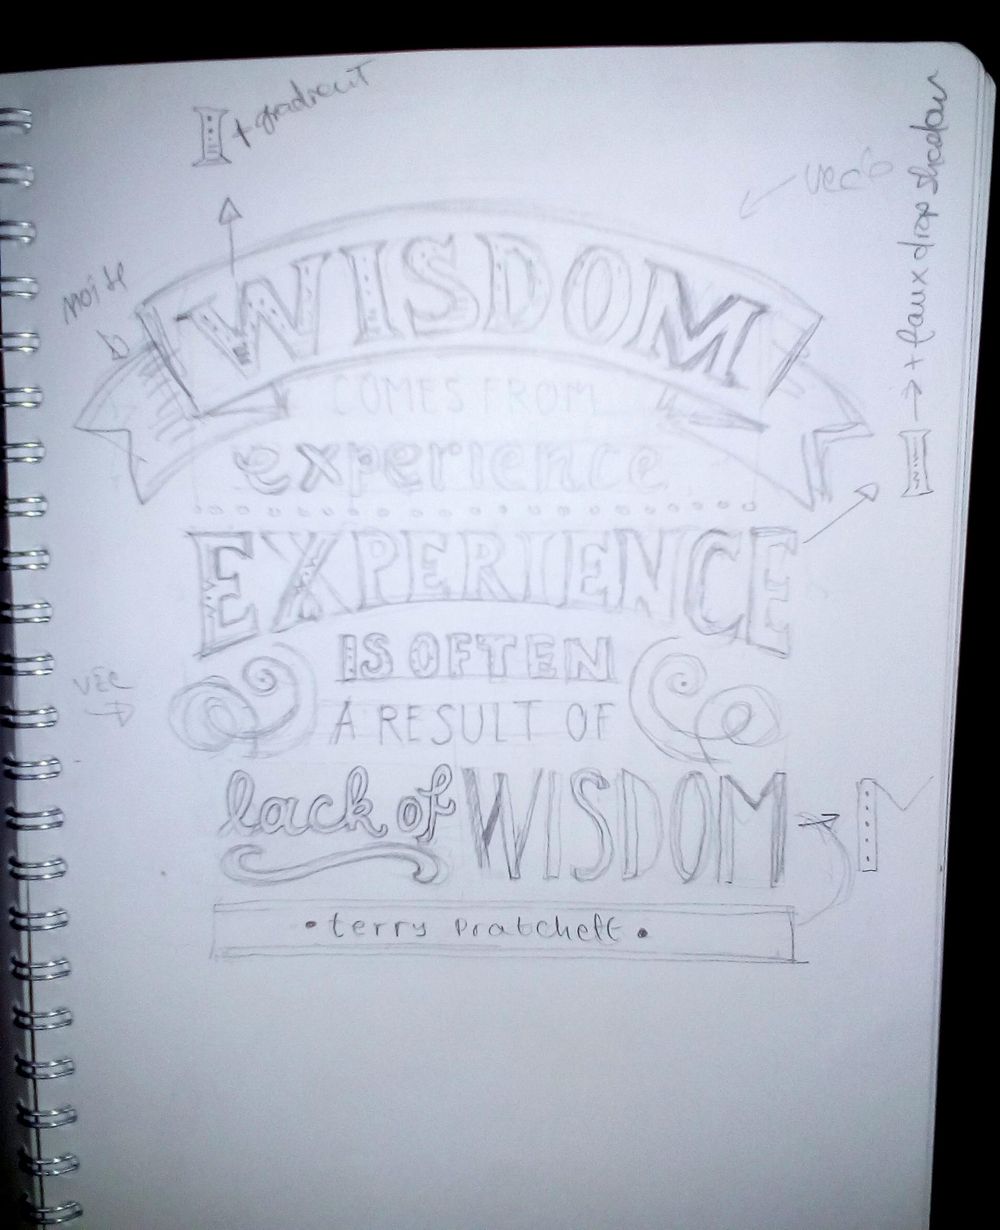 + gradient
vec
+ faux drop shadow
WISDOM
COMES FROM
experience
EXPERIENCE
IS OFTEN
vec
A RESULT OF
lack of WISDOM
• terry Pratchett •